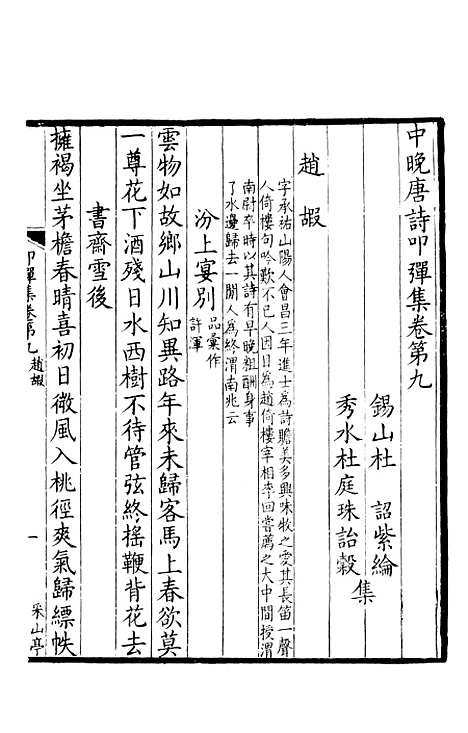 中晚唐詩叩彈集卷第九
錫山杜　詔紫綸
秀水杜庭珠詒穀
集
趙嘏
字承祐山陽人會昌三年進士為詩贍美多興味牧之愛其長笛一聲
人倚樓句吟歎不已人因目為趙倚樓宰相李回嘗薦之大中間授渭
南尉卒時以其詩有早晚粗酬身事
了水邊歸去一閒人為終渭南兆云
汾上宴別品彙作
許渾
雲物如故鄉山川知異路年來未歸客馬上春欲莫
一尊花下酒殘日水西樹不待管弦終搖鞭背花去
書齋雪後
擁褐坐茅檐春晴喜初日微風入桃徑爽氣歸縹帙
叩彈集卷第九趙嘏
一
采山亭